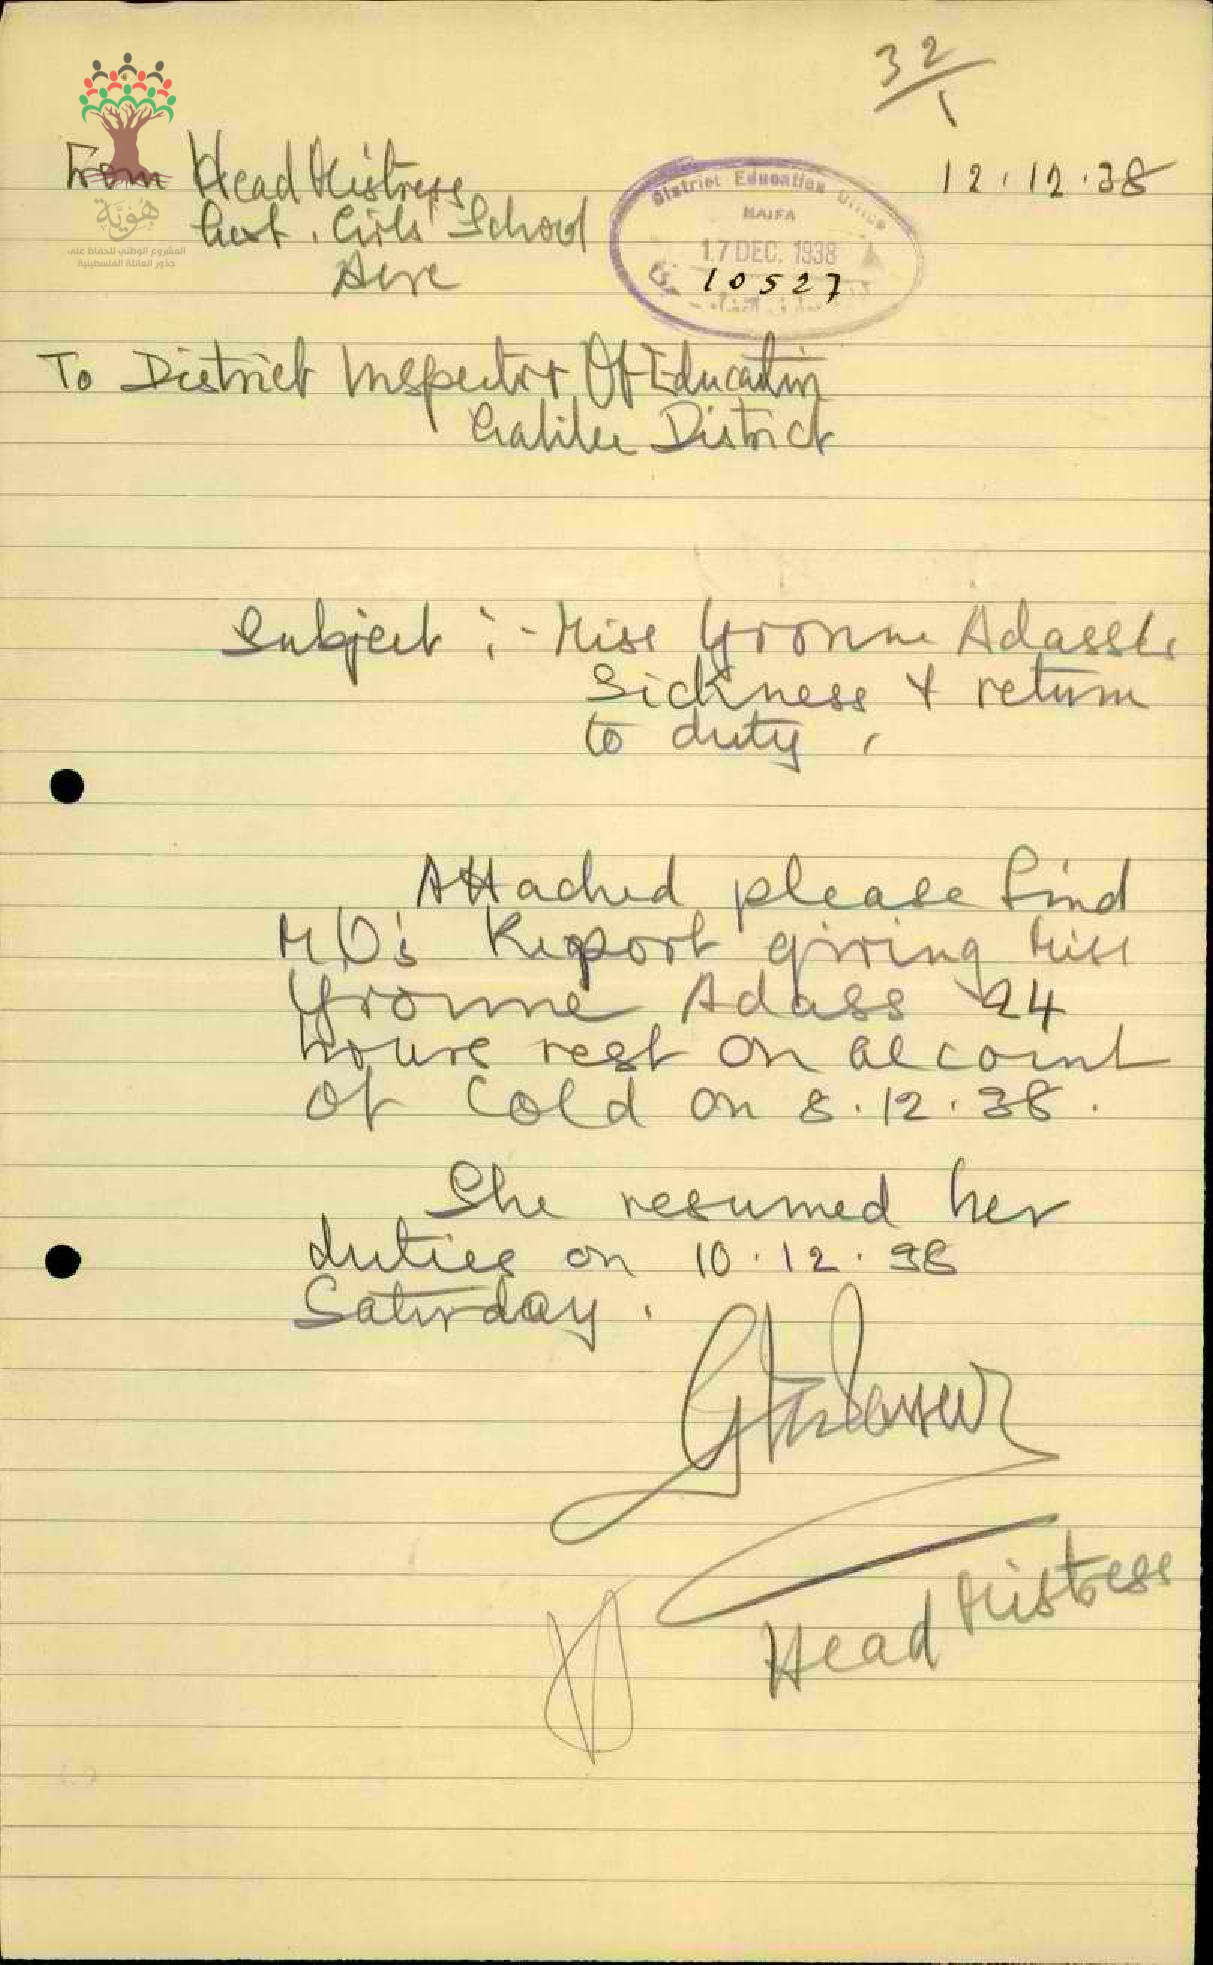 32/1
From Head Mistress
12.12.38
Govt. Girls' School
Acre
District Education Office
HAIFA
17 DEC. 1938
10527
هُوِيَّة
المشروع الوطني للحفاظ على
جذور العائلة الفلسطينية
To District Inspector Of Education
Galilee District
Subject :- Miss Yvonne Adass's
Sickness & return
to duty.
Attached please find
M.O's Report giving Miss
Yvonne Adass 24
hours rest on account
of Cold on 8.12.38.
She resumed her
duties on 10.12.38
Saturday.
Head Mistress